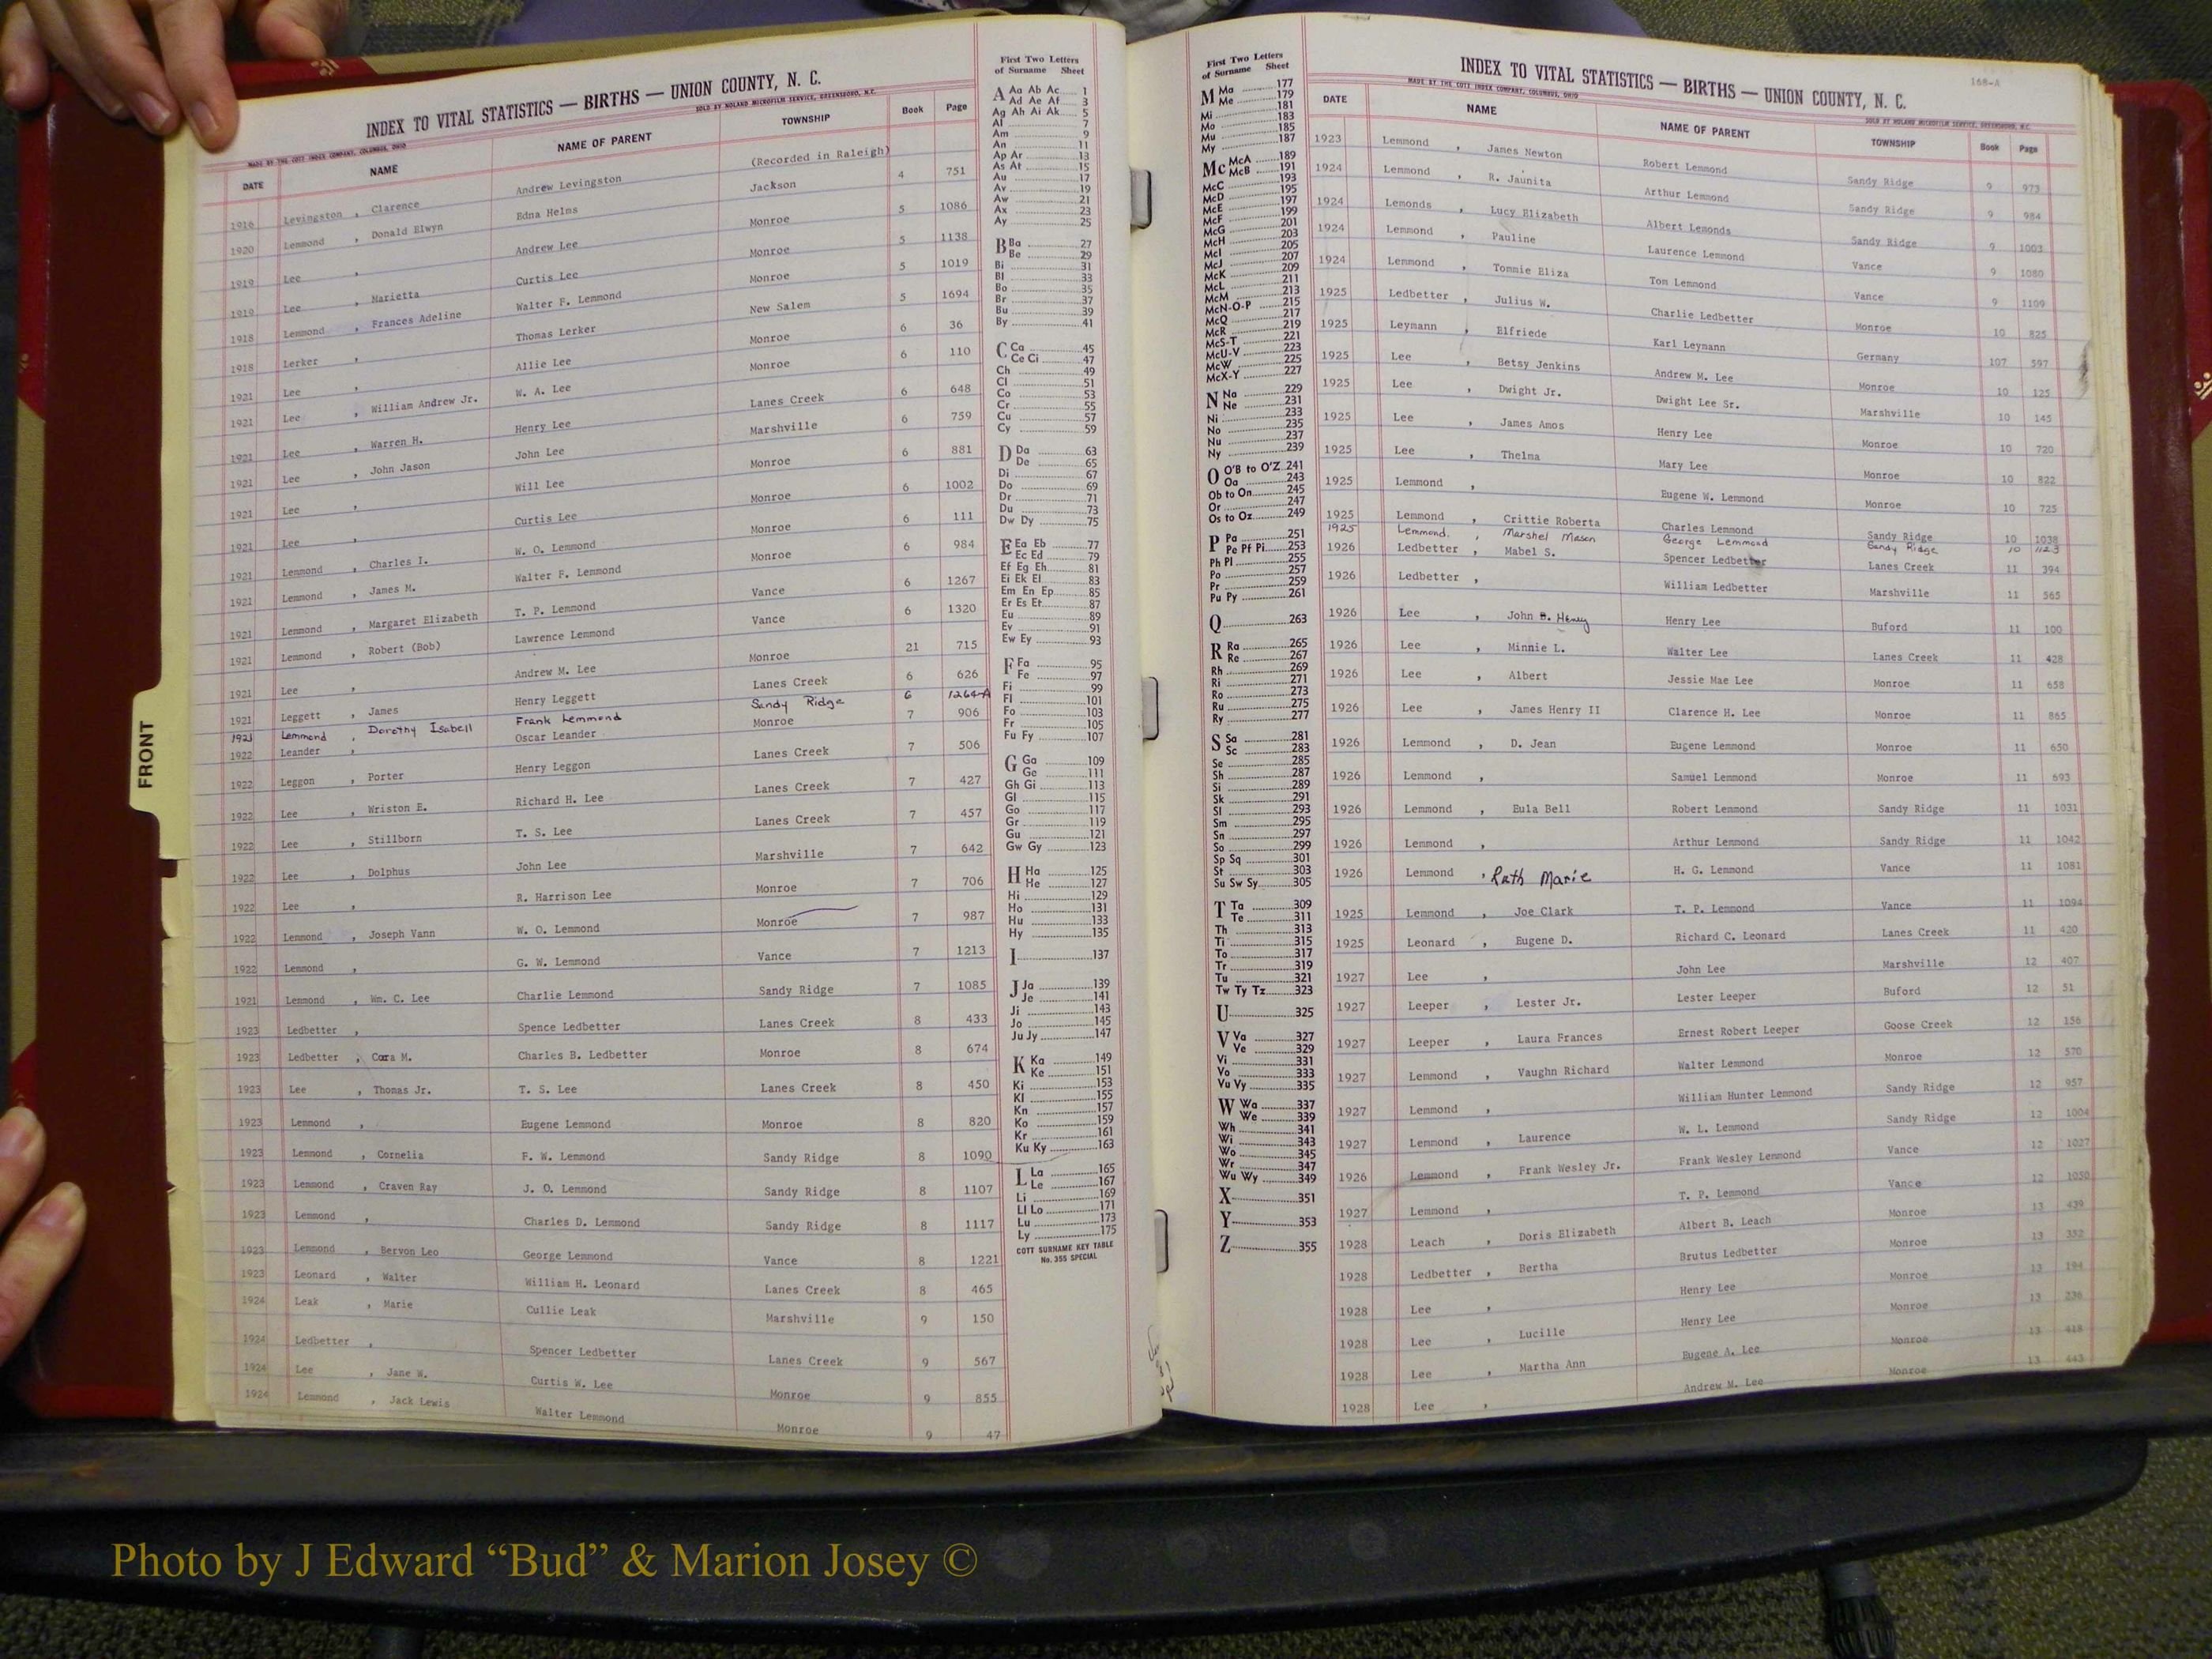 INDEX TO VITAL STATISTICS — BIRTHS — UNION COUNTY, N. C.
MADE BY THE COTT INDEX COMPANY, COLUMBUS, OHIO SOLD BY NOLAND MICROFILM SERVICE, GREENSBORO, N.C.
DATE NAME NAME OF PARENT TOWNSHIP Book Page
1916 Levingston , Clarence Andrew Levingston (Recorded in Raleigh)
1920 Lemmond , Donald Elwyn Edna Helms Jackson 4 751
1919 Lee , Andrew Lee Monroe 5 1086
1919 Lee , Marietta Curtis Lee Monroe 5 1138
1918 Lemmond , Frances Adeline Walter F. Lemmond Monroe 5 1019
1918 Lerker , Thomas Lerker New Salem 5 1694
1921 Lee , Allie Lee Monroe 6 36
1921 Lee , William Andrew Jr. W. A. Lee Monroe 6 110
1921 Lee , Warren H. Henry Lee Lanes Creek 6 648
1921 Lee , John Jason John Lee Marshville 6 759
1921 Lee , Will Lee Monroe 6 881
1921 Lee , Curtis Lee Monroe 6 1002
1921 Lemmond , Charles I. W. O. Lemmond Monroe 6 111
1921 Lemmond , James M. Walter F. Lemmond Monroe 6 984
1921 Lemmond , Margaret Elizabeth T. P. Lemmond Vance 6 1267
1921 Lemmond , Robert (Bob) Lawrence Lemmond Vance 6 1320
1921 Lee , Andrew M. Lee Monroe 21 715
1921 Leggett , James Henry Leggett Lanes Creek 6 626
1921 Lemmond , Dorothy Isabell Frank Lemmond Sandy Ridge 6 1264-A
1922 Leander , Oscar Leander Monroe 7 906
1922 Leggon , Porter Henry Leggon Lanes Creek 7 506
1922 Lee , Wriston E. Richard H. Lee Lanes Creek 7 427
1922 Lee , Stillborn T. S. Lee Lanes Creek 7 457
1922 Lee , Dolphus John Lee Marshville 7 642
1922 Lee , R. Harrison Lee Monroe 7 706
1922 Lemmond , Joseph Vann W. O. Lemmond Monroe 7 987
1922 Lemmond , G. W. Lemmond Vance 7 1213
1921 Lemmond , Wm. C. Lee Charlie Lemmond Sandy Ridge 7 1085
1923 Ledbetter , Spence Ledbetter Lanes Creek 8 433
1923 Ledbetter , Cora M. Charles B. Ledbetter Monroe 8 674
1923 Lee , Thomas Jr. T. S. Lee Lanes Creek 8 450
1923 Lemmond , Eugene Lemmond Monroe 8 820
1923 Lemmond , Cornelia F. W. Lemmond Sandy Ridge 8 1090
1923 Lemmond , Craven Ray J. O. Lemmond Sandy Ridge 8 1107
1923 Lemmond , Charles D. Lemmond Sandy Ridge 8 1117
1923 Lemmond , Bervon Leo George Lemmond Vance 8 1221
1923 Leonard , Walter William H. Leonard Lanes Creek 8 465
1924 Leak , Marie Cullie Leak Marshville 9 150
1924 Ledbetter , Spencer Ledbetter Lanes Creek 9 567
1924 Lee , Jane W. Curtis W. Lee Monroe 9 855
1924 Lemmond , Jack Lewis Walter Lemmond Monroe 9 47
FRONT
First Two Letters
of Surname Sheet
A Aa Ab Ac 1
Ad Ae Af 3
Ag Ah Ai Ak 5
Al 7
Am 9
An 11
Ap Ar 13
As At 15
Au 17
Av 19
Aw 21
Ax 23
Ay 25
B Ba 27
Be 29
Bi 31
Bl 33
Bo 35
Br 37
Bu 39
By 41
C Ca 45
Ce Ci 47
Ch 49
Cl 51
Co 53
Cr 55
Cu 57
Cy 59
D Da 63
De 65
Di 67
Do 69
Dr 71
Du 73
Dw Dy 75
E Ea Eb 77
Ec Ed 79
Ef Eg Eh 81
Ei Ek El 83
Em En Ep 85
Er Es Et 87
Eu 89
Ev 91
Ew Ey 93
F Fa 95
Fe 97
Fi 99
Fl 101
Fo 103
Fr 105
Fu Fy 107
G Ga 109
Ge 111
Gh Gi 113
Gl 115
Go 117
Gr 119
Gu 121
Gw Gy 123
H Ha 125
He 127
Hi 129
Ho 131
Hu 133
Hy 135
I 137
J Ja 139
Je 141
Ji 143
Jo 145
Ju Jy 147
K Ka 149
Ke 151
Ki 153
Kl 155
Kn 157
Ko 159
Kr 161
Ku Ky 163
L La 165
Le 167
Li 169
Ll Lo 171
Lu 173
Ly 175
COTT SURNAME KEY TABLE
No. 355 SPECIAL
First Two Letters
of Surname Sheet
M Ma 177
Me 179
Mi 181
Mo 183
Mu 185
My 187
Mc McA 189
McB 191
McC 193
McD 195
McE 197
McF 199
McG 201
McH 203
McI 205
McJ 207
McK 209
McL 211
McM 213
McN-O-P 215
McQ 217
McR 219
McS-T 221
McU-V 223
McW 225
McX-Y 227
N Na 229
Ne 231
Ni 233
No 235
Nu 237
Ny 239
O O'B to O'Z 241
Oa 243
Ob to On 245
Or 247
Os to Oz 249
P Pa 251
Pe Pf Pi 253
Ph Pl 255
Po 257
Pr 259
Pu Py 261
Q 263
R Ra 265
Re 267
Rh 269
Ri 271
Ro 273
Ru 275
Ry 277
S Sa 281
Sc 283
Se 285
Sh 287
Si 289
Sk 291
Sl 293
Sm 295
Sn 297
So 299
Sp Sq 301
St 303
Su Sw Sy 305
T Ta 309
Te 311
Th 313
Ti 315
To 317
Tr 319
Tu 321
Tw Ty Tz 323
U 325
V Va 327
Ve 329
Vi 331
Vo 333
Vu Vy 335
W Wa 337
We 339
Wh 341
Wi 343
Wo 345
Wr 347
Wu Wy 349
X 351
Y 353
Z 355
168-A
INDEX TO VITAL STATISTICS — BIRTHS — UNION COUNTY, N. C.
MADE BY THE COTT INDEX COMPANY, COLUMBUS, OHIO SOLD BY NOLAND MICROFILM SERVICE, GREENSBORO, N.C.
DATE NAME NAME OF PARENT TOWNSHIP Book Page
1923 Lemmond , James Newton Robert Lemmond Sandy Ridge 9 973
1924 Lemmond , R. Jaunita Arthur Lemmond Sandy Ridge 9 984
1924 Lemonds , Lucy Elizabeth Albert Lemonds Sandy Ridge 9 1003
1924 Lemmond , Pauline Laurence Lemmond Vance 9 1080
1924 Lemmond , Tommie Eliza Tom Lemmond Vance 9 1109
1925 Ledbetter , Julius W. Charlie Ledbetter Monroe 10 825
1925 Leymann , Elfriede Karl Leymann Germany 107 597
1925 Lee , Betsy Jenkins Andrew M. Lee Monroe 10 125
1925 Lee , Dwight Jr. Dwight Lee Sr. Marshville 10 145
1925 Lee , James Amos Henry Lee Monroe 10 720
1925 Lee , Thelma Mary Lee Monroe 10 822
1925 Lemmond , Eugene W. Lemmond Monroe 10 725
1925 Lemmond , Crittie Roberta Charles Lemmond Sandy Ridge 10 1038
1925 Lemmond. , Marshel Mason George Lemmond Sandy Ridge 10 1123
1926 Ledbetter , Mabel S. Spencer Ledbetter Lanes Creek 11 394
1926 Ledbetter , William Ledbetter Marshville 11 565
1926 Lee , John B. Henry Henry Lee Buford 11 100
1926 Lee , Minnie L. Walter Lee Lanes Creek 11 428
1926 Lee , Albert Jessie Mae Lee Monroe 11 658
1926 Lee , James Henry II Clarence H. Lee Monroe 11 865
1926 Lemmond , D. Jean Eugene Lemmond Monroe 11 650
1926 Lemmond , Samuel Lemmond Monroe 11 693
1926 Lemmond , Eula Bell Robert Lemmond Sandy Ridge 11 1031
1926 Lemmond , Arthur Lemmond Sandy Ridge 11 1042
1926 Lemmond , Ruth Marie H. G. Lemmond Vance 11 1081
1925 Lemmond , Joe Clark T. P. Lemmond Vance 11 1094
1925 Leonard , Eugene D. Richard C. Leonard Lanes Creek 11 420
1927 Lee , John Lee Marshville 12 407
1927 Leeper , Lester Jr. Lester Leeper Buford 12 51
1927 Leeper , Laura Frances Ernest Robert Leeper Goose Creek 12 156
1927 Lemmond , Vaughn Richard Walter Lemmond Monroe 12 570
1927 Lemmond , William Hunter Lemmond Sandy Ridge 12 957
1927 Lemmond , Laurence W. L. Lemmond Sandy Ridge 12 1004
1926 Lemmond , Frank Wesley Jr. Frank Wesley Lemmond Vance 12 1027
1927 Lemmond , T. P. Lemmond Vance 12 1050
1928 Leach , Doris Elizabeth Albert B. Leach Monroe 13 439
1928 Ledbetter , Bertha Brutus Ledbetter Monroe 13 352
1928 Lee , Henry Lee Monroe 13 194
1928 Lee , Lucille Henry Lee Monroe 13 236
1928 Lee , Martha Ann Eugene A. Lee Monroe 13 418
1928 Lee , Andrew M. Lee Monroe 13 443
Photo by J Edward “Bud” & Marion Josey ©